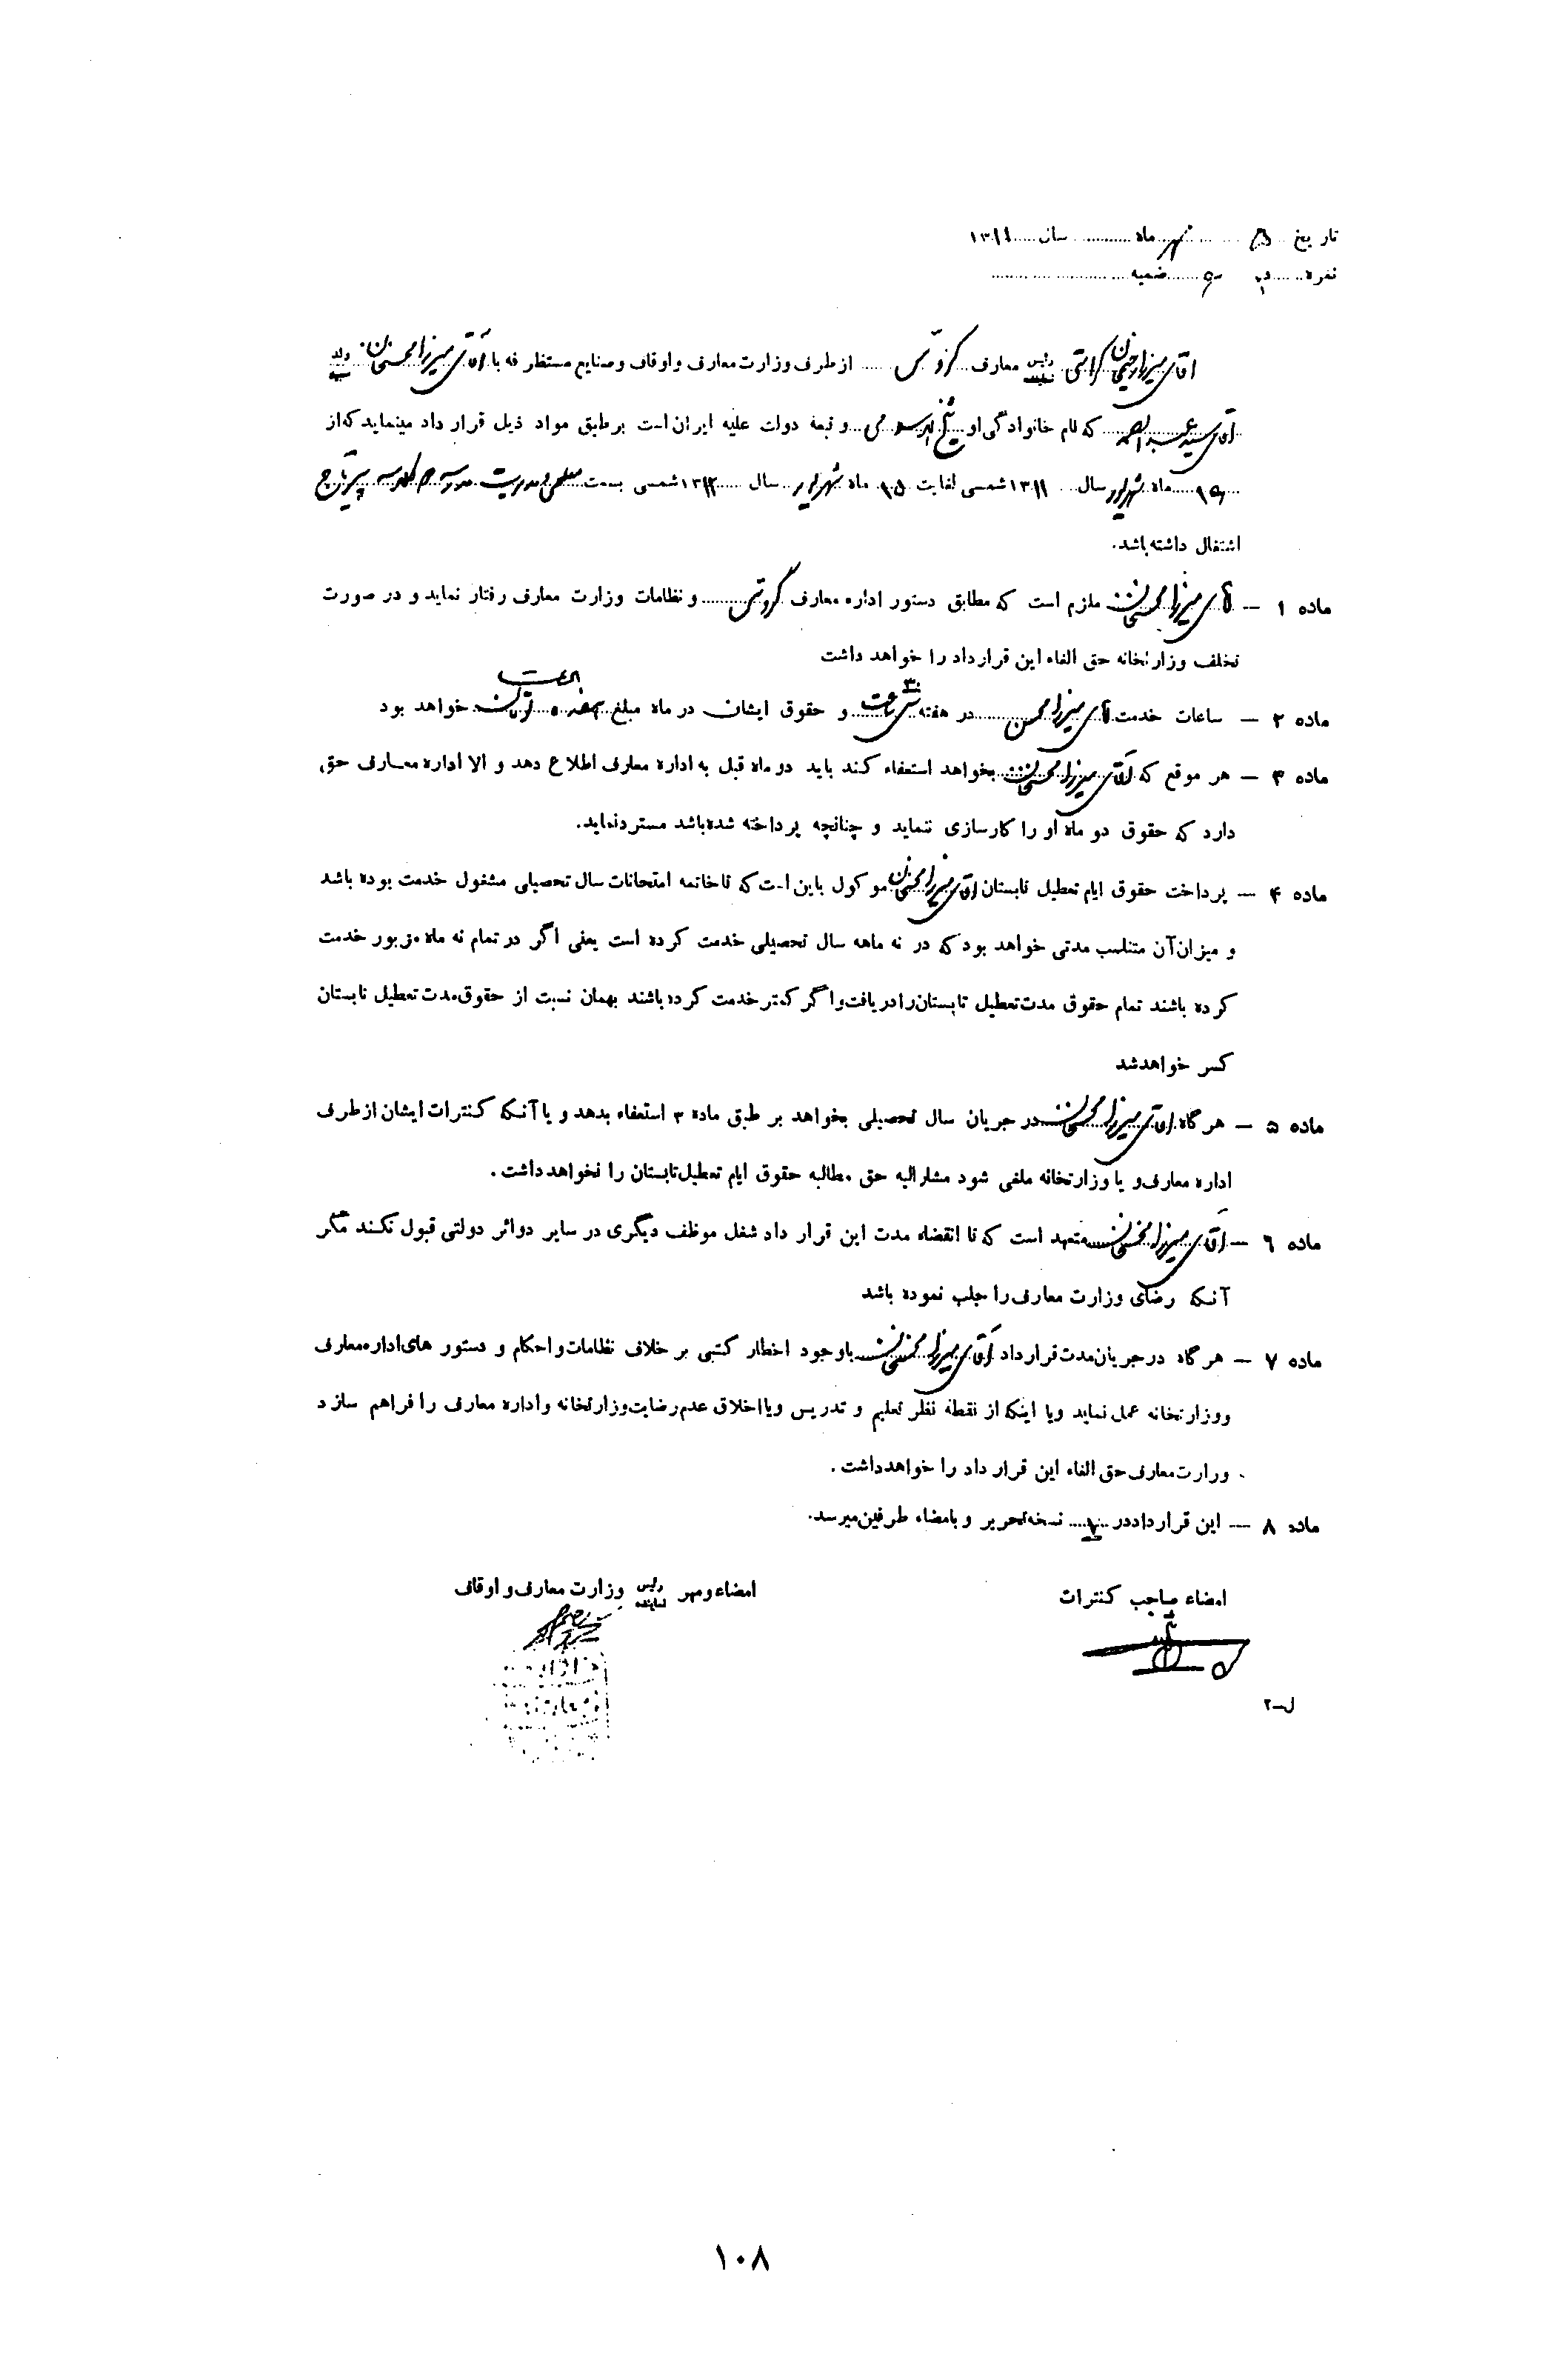 تاریخ ۵ مهر ماه سال ۱۳۱۱
نمره ضمیمه
اقای میرزا رحیمخان کرامتی رئیس نماینده معارف گروس از طرف وزارت معارف و اوقاف و صنایع مستظرفه با آقای میرزا محسنخان ولد
آقای سید عبدالصمد که نام خانوادگی او شیخ الاسلامی و تبعهٔ دولت علیه ایران است بر طبق مواد ذیل قرار داد مینماید که از
ماه شهریور سال ۱۳۱۱ شمسی لغایت ۱۵ ماه شهریور سال ۱۳۱۲ شمسی بسمت معلمی و مدیریت مدرسه
اشتغال داشته باشد.
ماده ۱ — آقای میرزا محسنخان ملزم است که مطابق دستور اداره معارف گروس و نظامات وزارت معارف رفتار نماید و در صورت
تخلف وزارتخانه حق الغاء این قرارداد را خواهد داشت
ماده ۲ — ساعات خدمت آقای میرزا محسن در هفته ۳۰ سی ساعت و حقوق ایشان در ماه مبلغ خواهد بود
ماده ۳ — هر موقع که آقای میرزا محسنخان بخواهد استعفاء کند باید دو ماه قبل به اداره معارف اطلاع دهد و الا اداره معارف حق
دارد که حقوق دو ماه او را کارسازی ننماید و چنانچه پرداخته شده باشد مسترد نماید.
ماده ۴ — پرداخت حقوق ایام تعطیل تابستان اقای میرزا محسنخان موکول باین است که تا خاتمه امتحانات سال تحصیلی مشغول خدمت بوده باشد
و میزان آن متناسب مدتی خواهد بود که در نه ماهه سال تحصیلی خدمت کرده است یعنی اگر در تمام نه ماه مزبور خدمت
کرده باشند تمام حقوق مدت تعطیل تابستان را دریافت و اگر کمتر خدمت کرده باشند بهمان نسبت از حقوق مدت تعطیل تابستان
کسر خواهد شد
ماده ۵ — هر گاه اقای میرزا محسنخان در جریان سال تحصیلی بخواهد بر طبق ماده ۳ استعفاء بدهد و یا آنکه کنترات ایشان از طرف
اداره معارف و یا وزارتخانه ملغی شود مشارالیه حق مطالبه حقوق ایام تعطیل تابستان را نخواهد داشت.
ماده ۶ — آقای میرزا محسنخان متعهد است که تا انقضاء مدت این قرار داد شغل موظف دیگری در سایر دوائر دولتی قبول نکند مگر
آنکه رضای وزارت معارف را جلب نموده باشد
ماده ۷ — هر گاه در جریان مدت قرارداد آقای میرزا محسنخان با وجود اخطار کتبی بر خلاف نظامات و احکام و دستور های اداره معارف
و وزارتخانه عمل نماید و یا اینکه از نقطه نظر تعلیم و تدریس و یا اخلاق عدم رضایت وزارتخانه و اداره معارف را فراهم سازد
وزارت معارف حق الغاء این قرار داد را خواهد داشت.
ماده ۸ — این قرارداد در نسخه تحریر و بامضاء طرفین میرسد.
امضاء صاحب کنترات
امضاء و مهر رئیس نماینده وزارت معارف و اوقاف
ل-۲
۱۰۸